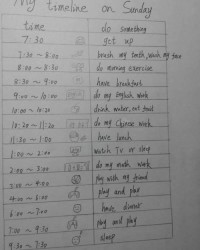 My timeline on Sunday
time do something
7:30 get up
7:30 ~ 8:00 brush my teeth, wash my face
8:00 ~ 8:30 do morning exercise
8:30 ~ 9:00 have breakfast
9:00 ~ 10:00 do my English work
10:00 ~ 10:20 drink water, eat fruit
10:20 ~ 11:20 do my Chinese work
11:20 ~ 1:00 have lunch
1:00 ~ 2:00 watch TV or sleep
2:00 ~ 3:00 do my math work
3:00 ~ 4:00 play with my friend
4:00 ~ 6:00 play and play
6:00 ~ 7:00 have dinner
7:00 ~ 9:30 play and play
9:30 ~ 7:30 sleep